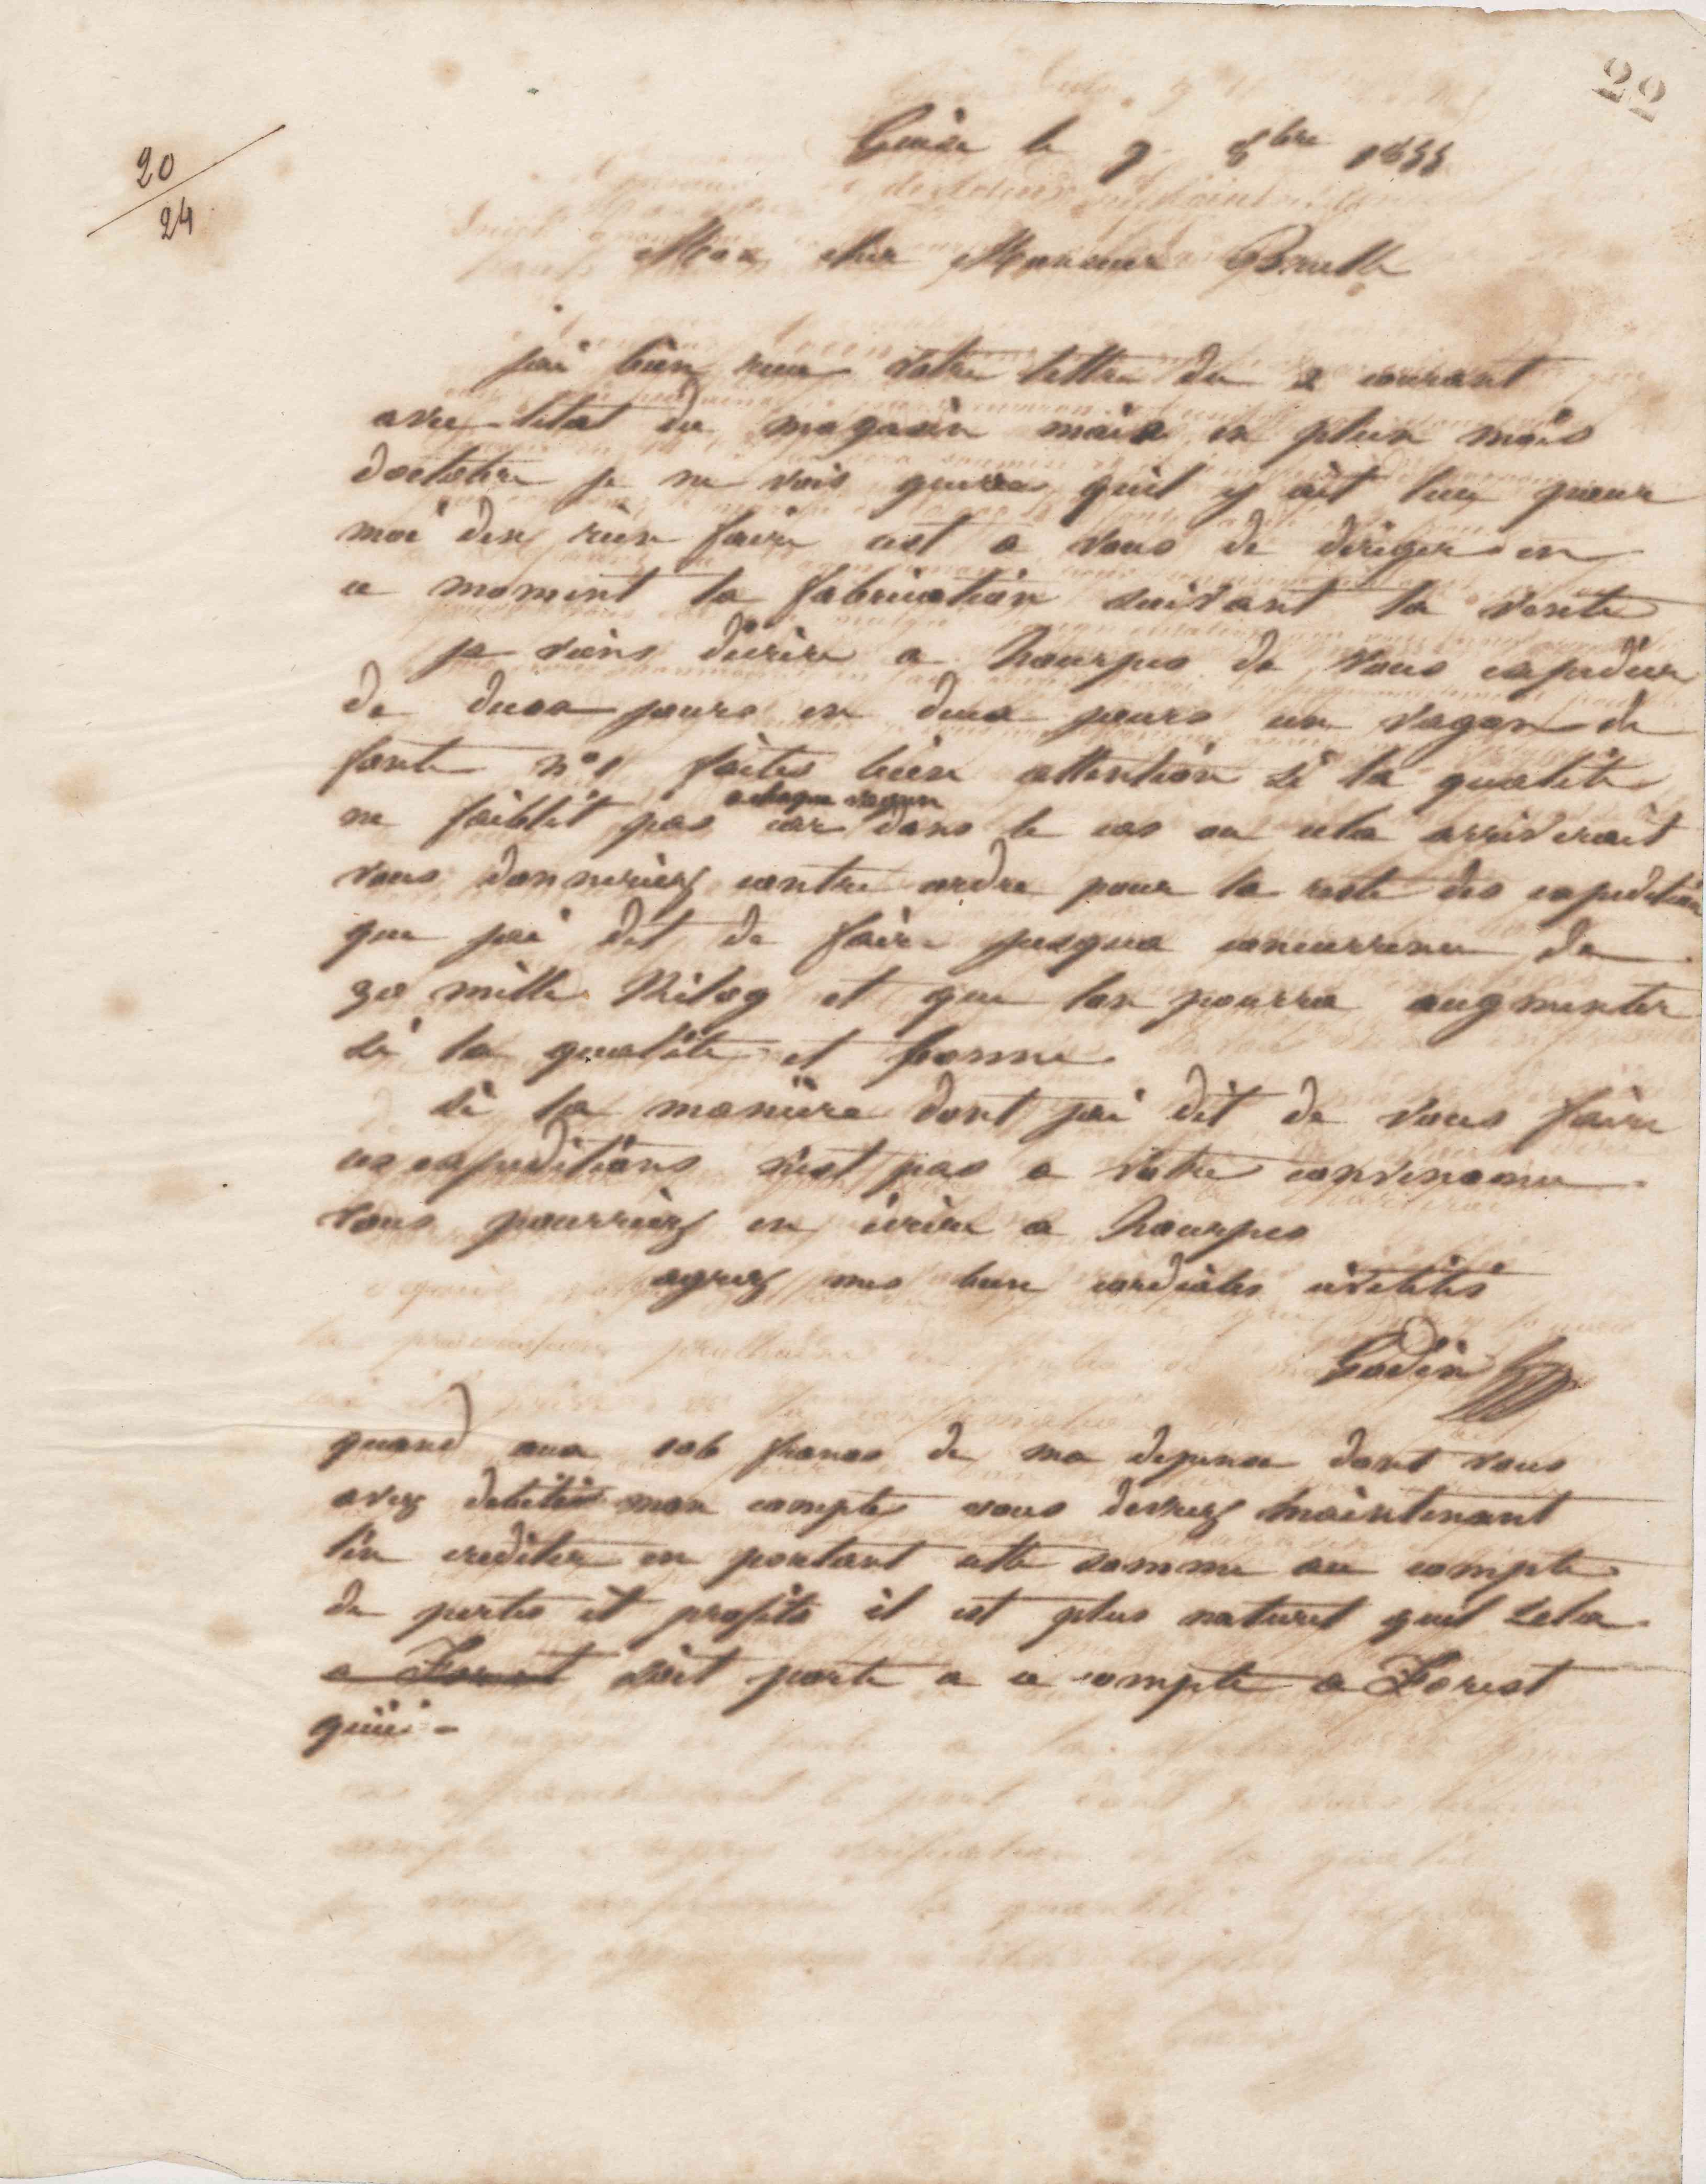 22
20
24
Guise le 9 8bre 1855
Mon cher Monsieur Brulle
jai bien recu votre lettre du 2 courant
avec letat du magasin mais en plein mois
doctobre je ne vois guerre quil y ait lieu pour
moi den rien faire cest a vous de diriger en
ce moment la fabrication suivant la vente
je viens décrire a hourpes de vous expedier
de deux jours en deux jours un vagon de
fonte n°1 faites bien attention si la qualité
ne faiblit pas a chaque vagon car dans le cas ou cela arriverait
vous donneriez contre ordre pour la reste des expedition
que jai dit de faire jusqua concurrence de
30 mille Kilog et que lon pourra augmenter
si la qualité et bonne
si la maniere dont jai dit de vous faire
ces expeditions nest pas a votre convenance
vous pourriez en écrire a hourpes
agreez mes bien cordiales civilités
Godin
quand aux 106 francs de ma depense dont vous
avez debité mon compte vous devrez maintenant
len crediter en portant cette somme au compte
de pertes et profits il est plus naturel quil cela
a Forest soit porte a ce compte a Forest
quici -